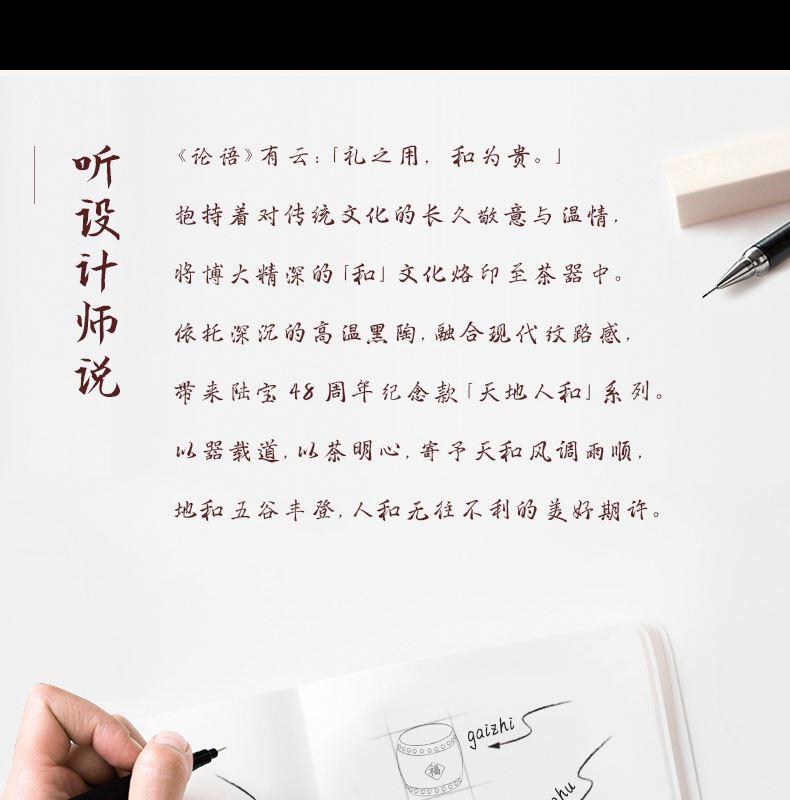 听设计师说
《论语》有云:「礼之用, 和为贵。」
抱持着对传统文化的长久敬意与温情,
将博大精深的「和」文化烙印至茶器中。
依托深沉的高温黑陶,融合现代纹路感,
带来陆宝48周年纪念款「天地人和」系列。
以器载道,以茶明心,寄予天和风调雨顺,
地和五谷丰登,人和无往不利的美好期许。
gaizhi
福